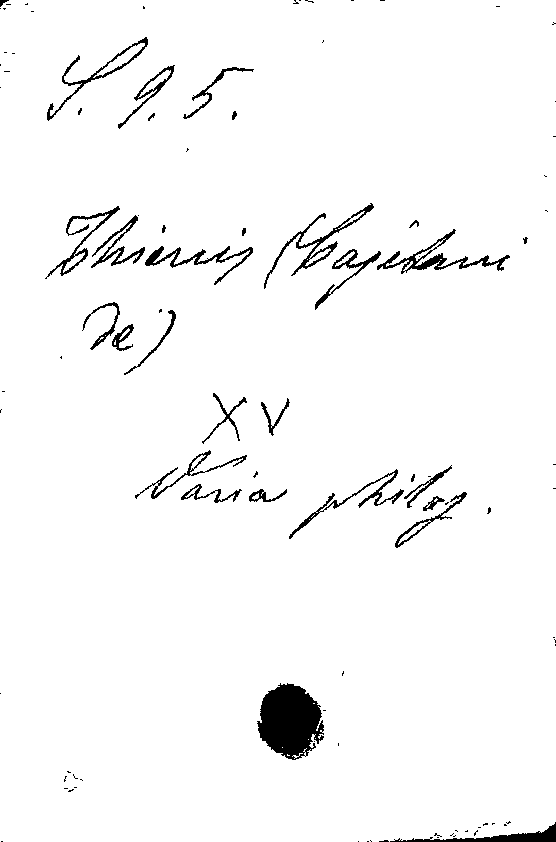 S. 9. 5.
Thienis (Cajetani
de)
XV
Varia philos.